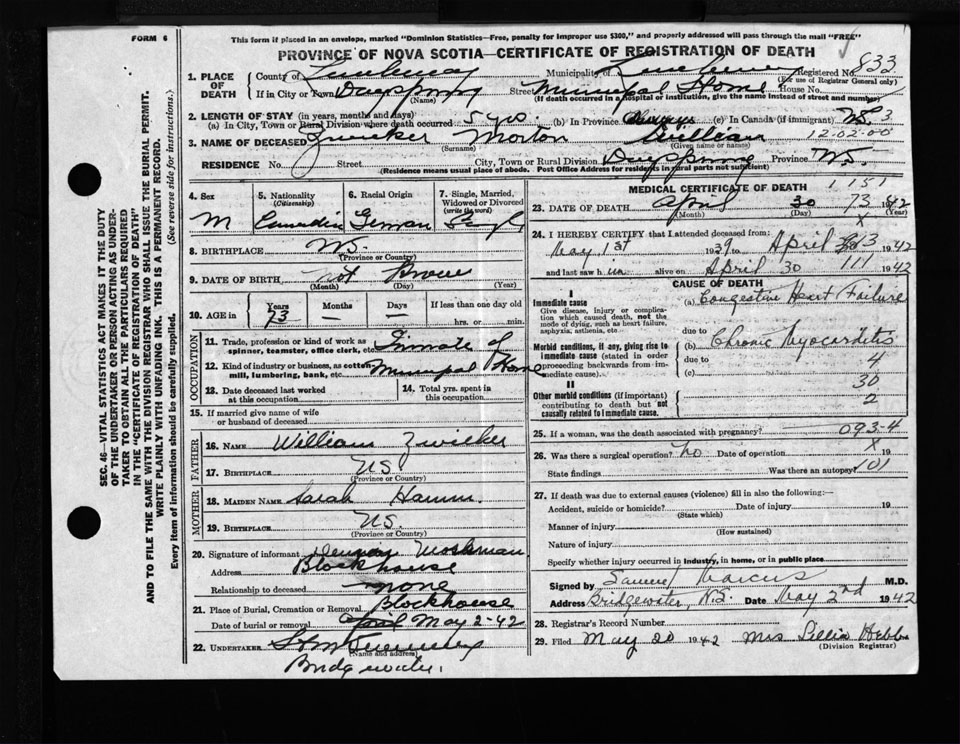 FORM 6
This form if placed in an envelope, marked "Dominion Statistics—Free, penalty for improper use $300," and properly addressed will pass through the mail "FREE"
PROVINCE OF NOVA SCOTIA—CERTIFICATE OF REGISTRATION OF DEATH
833
1. PLACE OF DEATH
County of Lunenburg Municipality of Lunenburg Registered No.
(For use of Registrar General only)
If in City or Town Dayspring Street Municipal Home House No.
(Name) (If death occurred in a hospital or institution, give the name instead of street and number)
2. LENGTH OF STAY (in years, months and days)
(a) In City, Town or Rural Division where death occurred 5 yrs. (b) In Province always (c) In Canada (if immigrant)
3. NAME OF DECEASED Zwicker Morton William 12-02-00
(Surname) (Given name or names)
RESIDENCE No. Street City, Town or Rural Division Dayspring Province NS.
(Residence means usual place of abode. Post Office Address for residents in rural parts not sufficient)
4. Sex M
5. Nationality (Citizenship) Canadian
6. Racial Origin German
7. Single, Married, Widowed or Divorced (write the word) Single
8. BIRTHPLACE NS.
(Province or Country)
9. DATE OF BIRTH not Known
(Month) (Day) (Year)
10. AGE IN Years 73 Months — Days — If less than one day old
hrs. or min.
OCCUPATION
11. Trade, profession or kind of work as spinner, teamster, office clerk, etc. Inmate of
12. Kind of industry or business, as cotton mill, lumbering, bank, etc. Municipal Home
13. Date deceased last worked at this occupation
14. Total yrs. spent in this occupation
15. If married give name of wife or husband of deceased
FATHER
16. NAME William Zwicker
17. BIRTHPLACE NS
(Province or Country)
MOTHER
18. MAIDEN NAME Sarah Hamm.
19. BIRTHPLACE NS.
(Province or Country)
20. Signature of informant Moshman
Address Blockhouse
Relationship to deceased none
21. Place of Burial, Cremation or Removal Blockhouse
Date of burial or removal April May 2-42
22. UNDERTAKER
(Name and address)
Bridgewater.
MEDICAL CERTIFICATE OF DEATH 1151
23. DATE OF DEATH April 30 73 1942
(Month) (Day) (Year)
X
24. I HEREBY CERTIFY that I attended deceased from:
May 1st 1939 to April 1942
and last saw h im alive on April 30 111 1942
CAUSE OF DEATH
I
Immediate cause
Give disease, injury or complication which caused death, not the mode of dying, such as heart failure, asphyxia, asthenia, etc.
(a) Congestive Heart Failure
due to
Morbid conditions, if any, giving rise to immediate cause (stated in order proceeding backwards from immediate cause).
(b) Chronic Myocarditis
due to 4
(c)
30
II
Other morbid conditions (if important) contributing to death but not causally related to immediate cause.
2
25. If a woman, was the death associated with pregnancy? 093-4
26. Was there a surgical operation? no Date of operation X 19
State findings Was there an autopsy? 101
27. If death was due to external causes (violence) fill in also the following:—
Accident, suicide or homicide? Date of injury 19
(State which)
Manner of injury
(How sustained)
Nature of injury
Specify whether injury occurred in Industry, in home, or in public place
Signed by Samuel Marcus M.D.
Address Bridgewater, N.S. Date May 2nd 1942
28. Registrar's Record Number
29. Filed May 20 1942 Mrs Lillia Hebb
(Division Registrar)
SEC. 46—VITAL STATISTICS ACT MAKES IT THE DUTY OF THE UNDERTAKER OR PERSON ACTING AS UNDERTAKER TO OBTAIN ALL THE PARTICULARS REQUIRED IN THE "CERTIFICATE OF REGISTRATION OF DEATH" AND TO FILE THE SAME WITH THE DIVISION REGISTRAR WHO SHALL ISSUE THE BURIAL PERMIT.
WRITE PLAINLY WITH UNFADING INK. THIS IS A PERMANENT RECORD.
Every item of information should be carefully supplied. (See reverse side for instructions.)